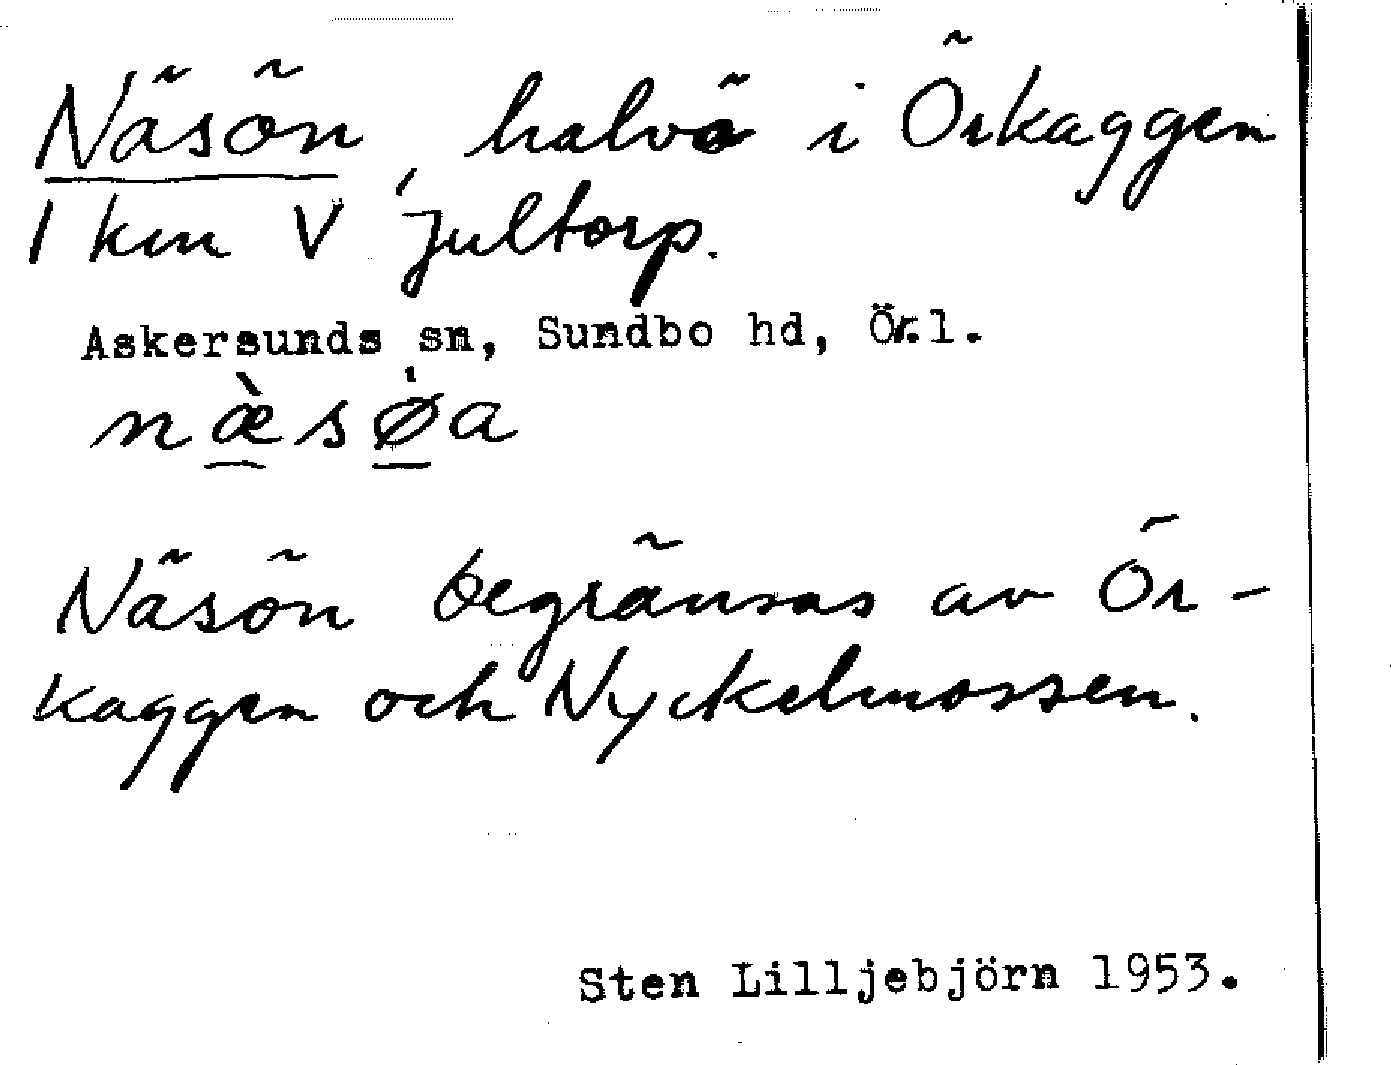 Näsön, halvö i Örkaggen
1 km V Jultorp.
Askersunds sn, Sundbo hd, Ör.l.
næ̠̀sø̠̍a
Näsön begränsas av Ör-
kaggen och Nyckelmossen.
Sten Lilljebjörn 1953.